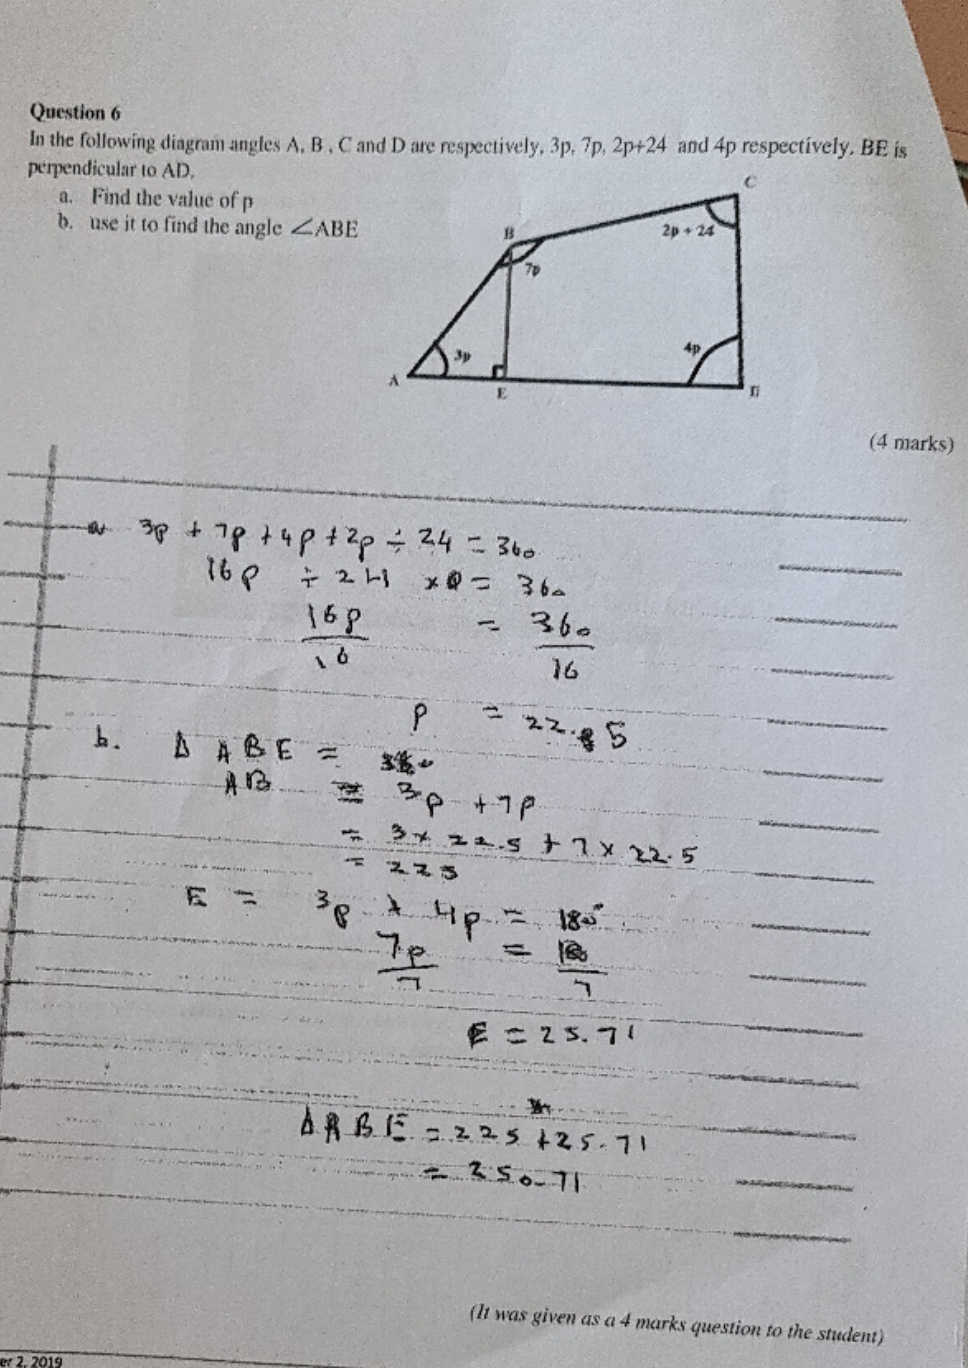 Question 6
In the following diagram angles A, B , C and D are respectively, 3p, 7p, 2p+24 and 4p respectively. BE is
perpendicular to AD.
a. Find the value of p
b. use it to find the angle ∠ABE
C
B
2p + 24
7p
3p
4p
A
E
D
(4 marks)
a 3p + 7p + 4p + 2p ÷ 24 = 360
16p ÷ 24 x0 = 360
16p = 360
16 16
p = 22.5
b. Δ ABE =
AB = 3p + 7p
= 3 x 22.5 + 7 x 22.5
= 225
E = 3p + 4p = 180°
7p = 180
7 7
E = 25.71
ΔABE = 225 + 25.71
= 250.71
(It was given as a 4 marks question to the student)
er 2, 2019